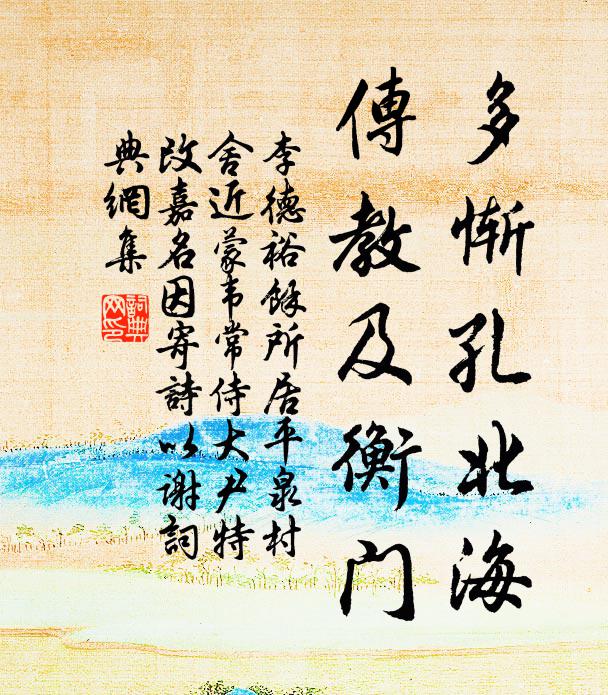 多惭孔北海
傳教及衡門
李德裕餘所居平泉村
舍近蒙韦常侍大尹特
改嘉名因寄詩以谢詞
典網集
詞典
网印